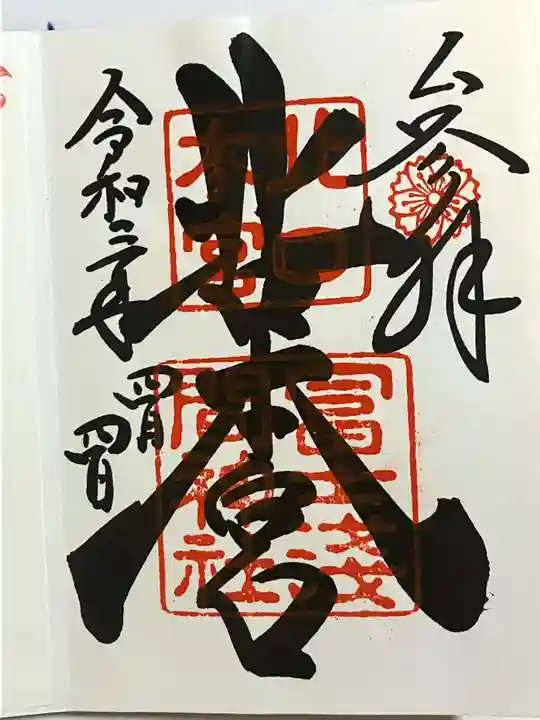 參拝
北口本宮
北口
本宮
冨士浅
間神社
令和三年
四月
四日